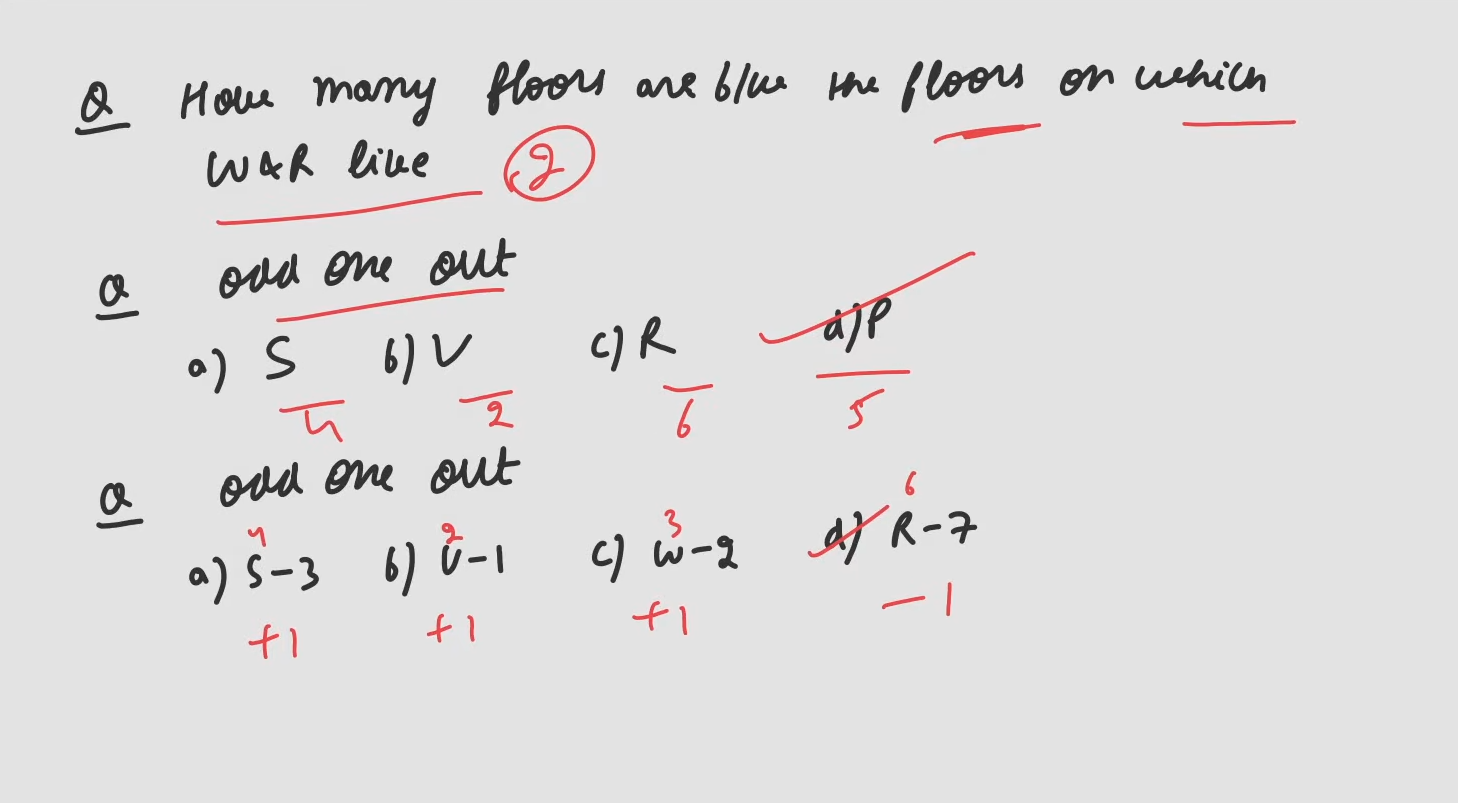 Q How many floors are b/w the floors on which
W & R live 2
Q odd one out
a) S b) V c) R d) P
4 2 6 5
Q odd one out
4 2 3 6
a) S-3 b) V-1 c) W-2 d) R-7
+1 +1 +1 -1